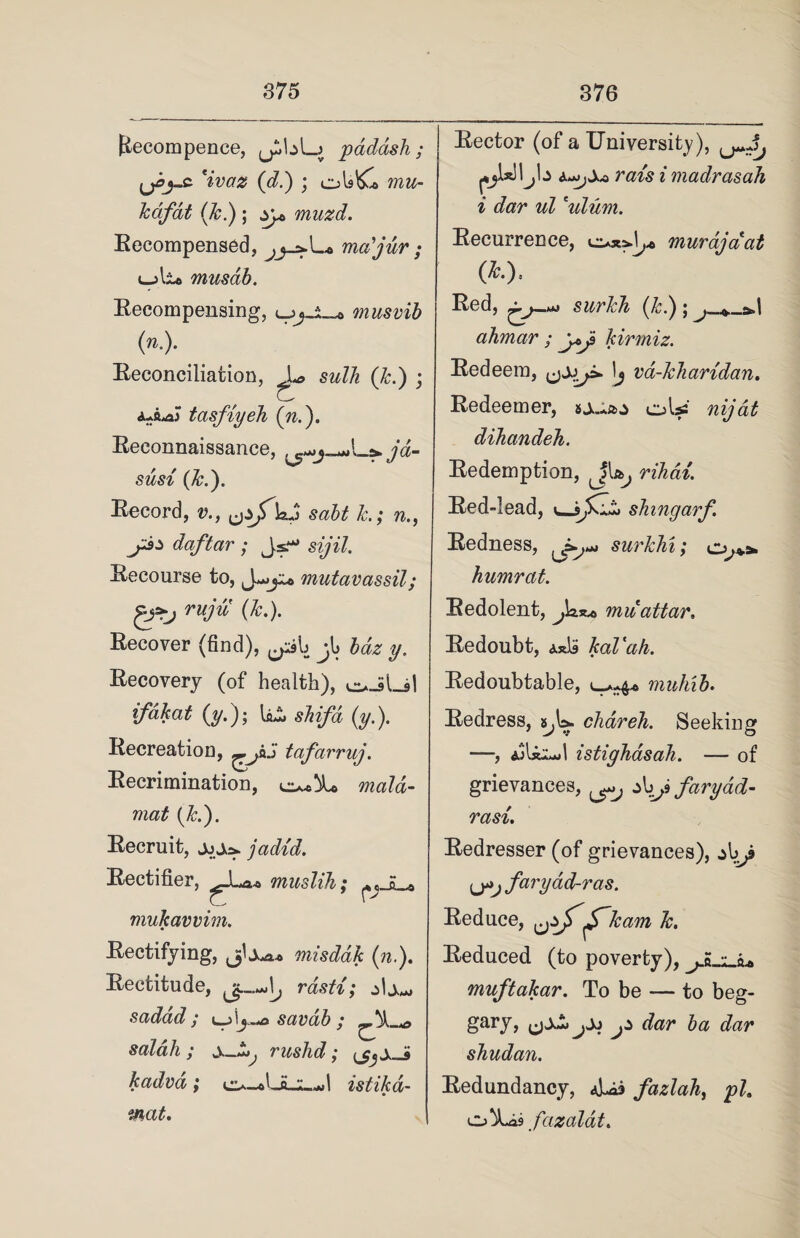 375
Recompence, پاداش pádásh ;
عوض 'ivaz (d.) ; مكافات mu-
káfát (k.) ; مزد muzd.
Recompensed, ماجور ma'júr ;
مثاب musáb.
Recompensing, مثوب musvib
(n.).
Reconciliation, صلح sulh (k.) ;
تصفيه tasfíyeh (n.).
Reconnaissance, جاسوسى já-
súsí (k.).
Record, v., ثبت كردن sabt k. ; n.,
دفتر daftar ; سجل sijil.
Recourse to, متوسل mutavassil ;
رجوع rujú' (k.).
Recover (find), باز يافتن báz y.
Recovery (of health), افاقت
ifákat (y.) ; شفا shifá (y.).
Recreation, تفرج tafarruj.
Recrimination, ملامت malá-
mat (k.).
Recruit, جديد jadíd.
Rectifier, مصلح muslih ; مقوم
mukavvim.
Rectifying, مصداق misdák (n.).
Rectitude, راستى rástí ; سداد
sadád ; صواب saváb ; صلاح
saláh ; رشد rushd ; قدوى
kadvá ; استقامت istiká-
mat.
376
Rector (of a University), رئيس
مدرسه دار العلوم raís i madrasah
i dar ul 'ulúm.
Recurrence, مراجعت murája'at
(k.).
Red, سرخ surkh (k.) ; احمر
ahmar ; قرمز kirmiz.
Redeem, وا خريدن vá-kharídan.
Redeemer, نجات دهنده niját
dihandeh.
Redemption, رهائى rihái.
Red-lead, شنگرف shingarf.
Redness, سرخى surkhí ; حمرت
humrat.
Redolent, معطر mu'attar.
Redoubt, قلعه kal'ah.
Redoubtable, مهيب muhíb.
Redress, چاره cháreh. Seeking
—, استغاثه istighásah. — of
grievances, فرياد رسى faryád-
rasí.
Redresser (of grievances), فرياد
رس faryád-ras.
Reduce, كم كردن kam k.
Reduced (to poverty), مفتقر
muftakar. To be — to beg-
gary, در بدر شدن dar ba dar
shudan.
Redundancy, فضله fazlah, pl.
فضلات fazalát.